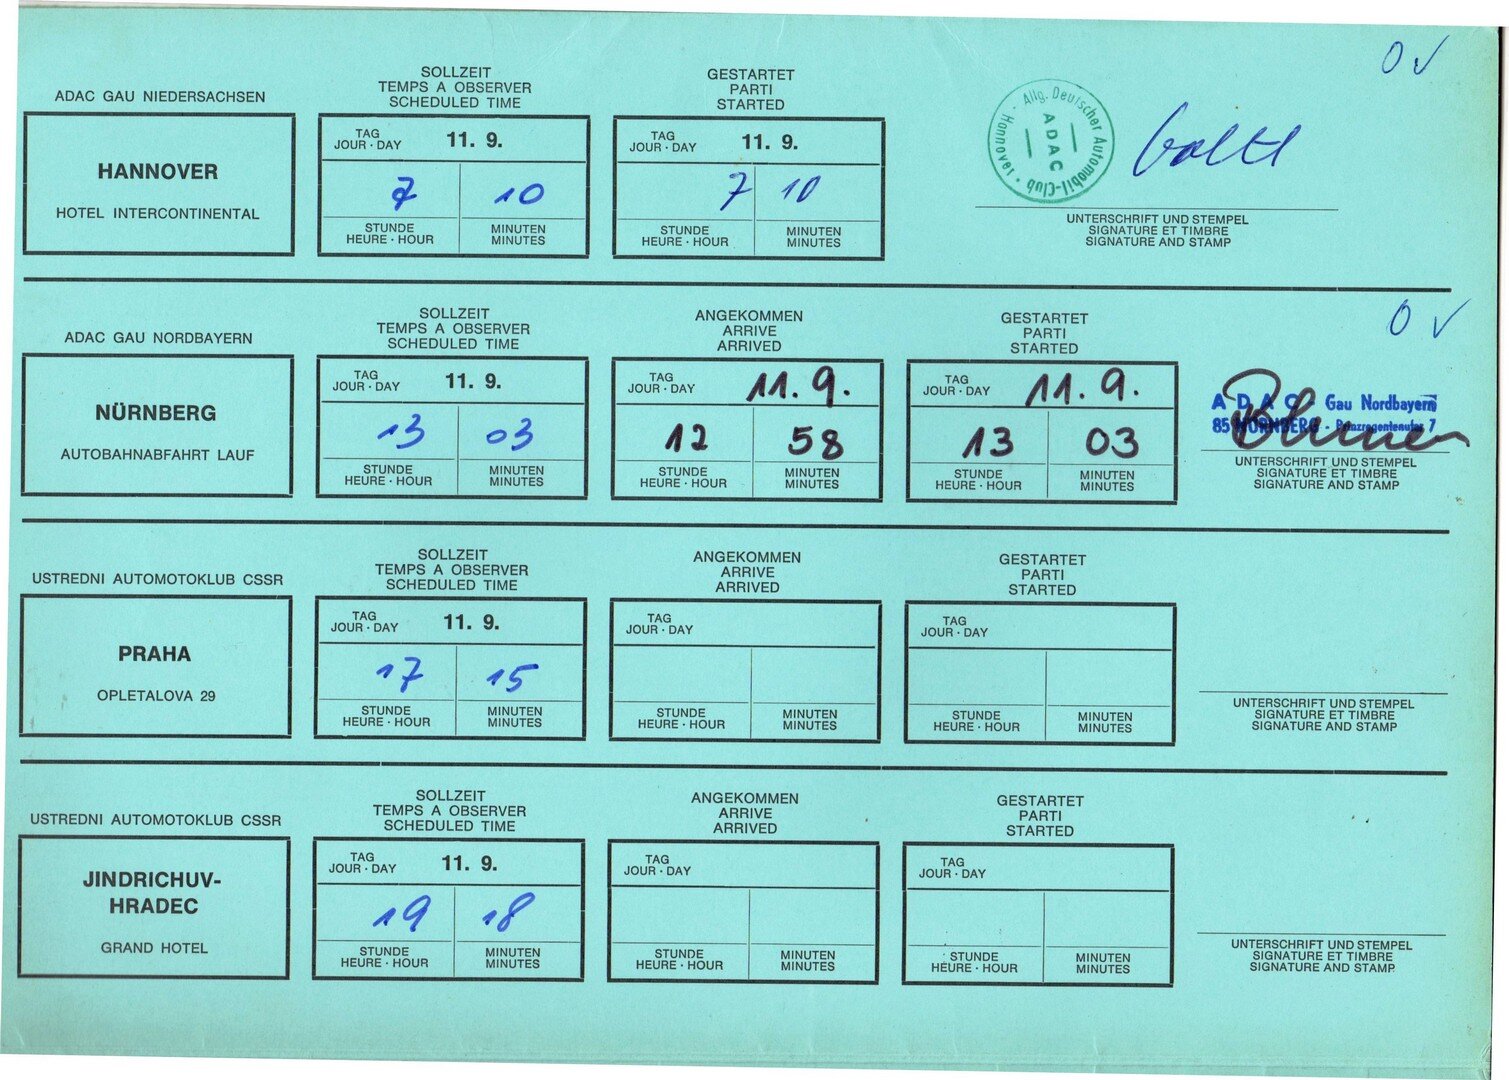 0 ✓
ADAC GAU NIEDERSACHSEN
SOLLZEIT
TEMPS A OBSERVER
SCHEDULED TIME
GESTARTET
PARTI
STARTED
HANNOVER
HOTEL INTERCONTINENTAL
TAG
JOUR · DAY 11. 9.
7 10
STUNDE MINUTEN
HEURE · HOUR MINUTES
TAG
JOUR · DAY 11. 9.
7 10
STUNDE MINUTEN
HEURE · HOUR MINUTES
Allg. Deutscher Automobil-Club · Hannover ·
ADAC
UNTERSCHRIFT UND STEMPEL
SIGNATURE ET TIMBRE
SIGNATURE AND STAMP
0 ✓
ADAC GAU NORDBAYERN
SOLLZEIT
TEMPS A OBSERVER
SCHEDULED TIME
ANGEKOMMEN
ARRIVE
ARRIVED
GESTARTET
PARTI
STARTED
NÜRNBERG
AUTOBAHNABFAHRT LAUF
TAG
JOUR · DAY 11. 9.
13 03
STUNDE MINUTEN
HEURE · HOUR MINUTES
TAG
JOUR · DAY 11. 9.
12 58
STUNDE MINUTEN
HEURE · HOUR MINUTES
TAG
JOUR · DAY 11. 9.
13 03
STUNDE MINUTEN
HEURE · HOUR MINUTES
ADAC Gau Nordbayern
85 NÜRNBERG - Prinzregentenufer 7
UNTERSCHRIFT UND STEMPEL
SIGNATURE ET TIMBRE
SIGNATURE AND STAMP
USTREDNI AUTOMOTOKLUB CSSR
SOLLZEIT
TEMPS A OBSERVER
SCHEDULED TIME
ANGEKOMMEN
ARRIVE
ARRIVED
GESTARTET
PARTI
STARTED
PRAHA
OPLETALOVA 29
TAG
JOUR · DAY 11. 9.
17 15
STUNDE MINUTEN
HEURE · HOUR MINUTES
TAG
JOUR · DAY
STUNDE MINUTEN
HEURE · HOUR MINUTES
TAG
JOUR · DAY
STUNDE MINUTEN
HEURE · HOUR MINUTES
UNTERSCHRIFT UND STEMPEL
SIGNATURE ET TIMBRE
SIGNATURE AND STAMP
USTREDNI AUTOMOTOKLUB CSSR
SOLLZEIT
TEMPS A OBSERVER
SCHEDULED TIME
ANGEKOMMEN
ARRIVE
ARRIVED
GESTARTET
PARTI
STARTED
JINDRICHUV-
HRADEC
GRAND HOTEL
TAG
JOUR · DAY 11. 9.
19 18
STUNDE MINUTEN
HEURE · HOUR MINUTES
TAG
JOUR · DAY
STUNDE MINUTEN
HEURE · HOUR MINUTES
TAG
JOUR · DAY
STUNDE MINUTEN
HEURE · HOUR MINUTES
UNTERSCHRIFT UND STEMPEL
SIGNATURE ET TIMBRE
SIGNATURE AND STAMP